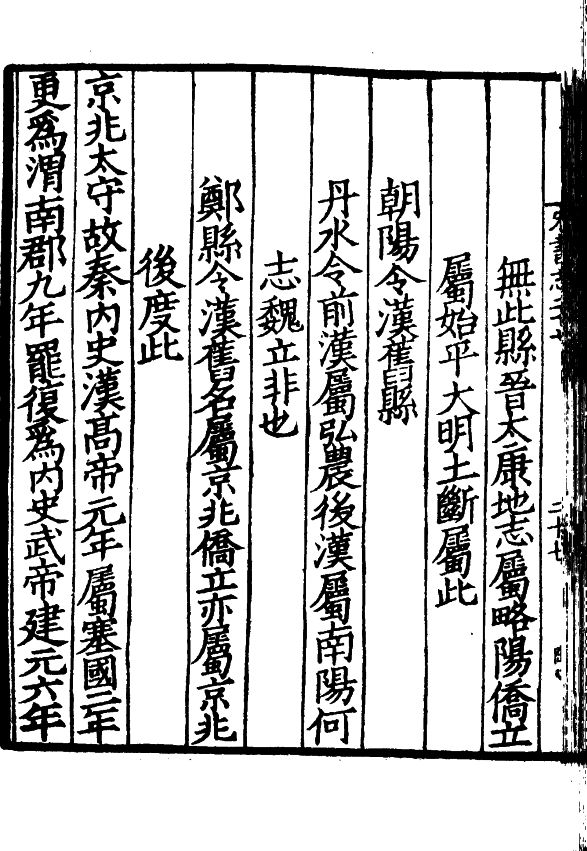 無此縣晉太康地志屬略陽僑立
屬始平大明土斷屬此
朝陽令漢舊縣
丹水令前漢屬弘農後漢屬南陽何
志魏立非也
鄭縣令漢舊名屬京兆僑立亦屬京兆
後度此
京兆太守故秦內史漢高帝元年屬塞國二年
更爲渭南郡九年罷復爲內史武帝建元六年